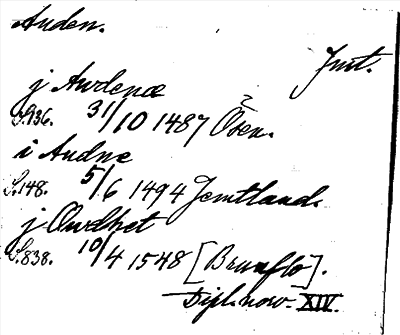 Anden.
Jmt.
j Awdenæ
S.936. 31/10 1487 Ösen.
i Andnæ
S.148. 5/6 1494 Jemtland.
j Owdhet
S.838. 10/4 1548 [Brunflo].
Dipl. norv. XIV.